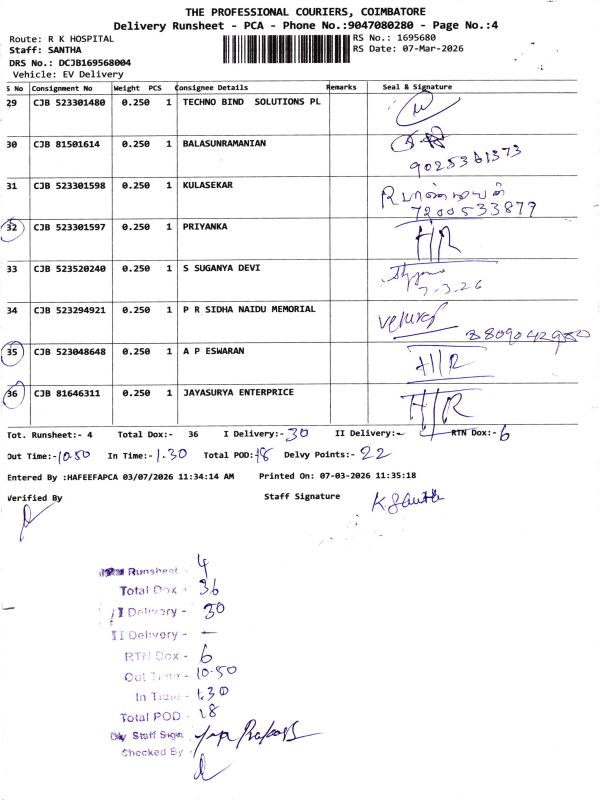 THE PROFESSIONAL COURIERS, COIMBATORE
Delivery Runsheet - PCA - Phone No.:9047080280 - Page No.:4
Route: R K HOSPITAL
RS No.: 1695680
Staff: SANTHA
RS Date: 07-Mar-2026
DRS No.: DCJB169568004
Vehicle: EV Delivery
S No Consignment No Weight PCS Consignee Details Remarks Seal & Signature
29 CJB 523301480 0.250 1 TECHNO BIND SOLUTIONS PL
30 CJB 81501614 0.250 1 BALASUNRAMANIAN
9025361373
31 CJB 523301598 0.250 1 KULASEKAR
7200533879
32 CJB 523301597 0.250 1 PRIYANKA H/R
33 CJB 523520240 0.250 1 S SUGANYA DEVI
7.3.26
34 CJB 523294921 0.250 1 P R SIDHA NAIDU MEMORIAL
8809042980
35 CJB 523048648 0.250 1 A P ESWARAN H/R
36 CJB 81646311 0.250 1 JAYASURYA ENTERPRICE H/R
Tot. Runsheet:- 4 Total Dox:- 36 I Delivery:- 30 II Delivery:- - RTN Dox:- 6
Out Time:- 10.50 In Time:- 1.30 Total POD:- 18 Delvy Points:- 22
Entered By :HAFEEFAPCA 03/07/2026 11:34:14 AM Printed On: 07-03-2026 11:35:18
Verified By Staff Signature K. Santha
Runsheet - 4
Total Dox - 36
I Delivery - 30
II Delivery - —
RTN Dox - 6
Out Time - 10.50
In Time - 1.30
Total POD - 18
Dly Staff Sign
Checked By -